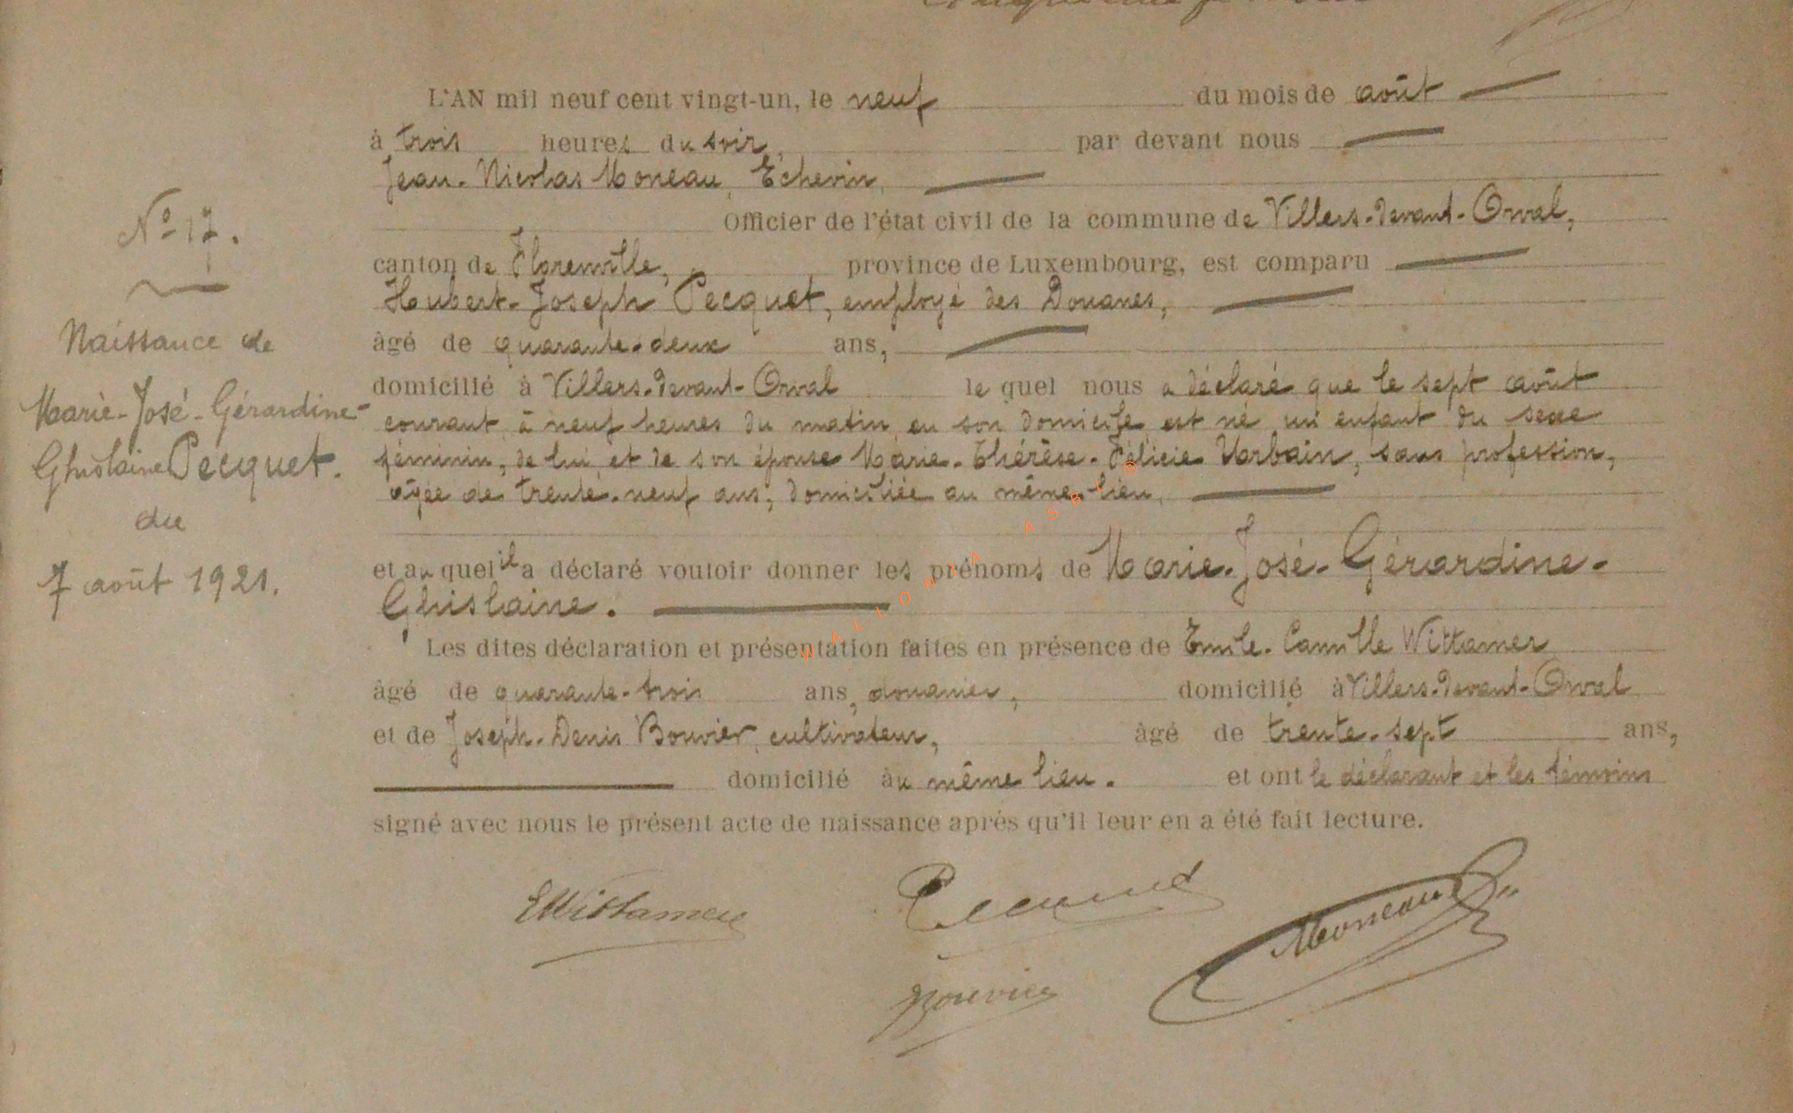 L'AN mil neuf cent vingt-un, le neuf du mois de août
à trois heures du soir, par devant nous
Jean-Nicolas Moneau, Echevin,
Officier de l'état civil de la commune de Villers-devant-Orval,
canton de Florenville, province de Luxembourg, est comparu
Hubert-Joseph Pecquet, employé des Douanes,
âgé de quarante-deux ans,
domicilié à Villers-devant-Orval le quel nous a déclaré que le sept août
courant à neuf heures du matin, en son domicile est né un enfant du sexe
féminin, de lui et de son épouse Marie-Thérèse-Félicie Urbain, sans profession,
âgée de trente-neuf ans, domiciliée au même lieu,
et au quel il a déclaré vouloir donner les prénoms de Marie-José-Gérardine-
Ghislaine.
Les dites déclaration et présentation faites en présence de Emile-Camille Wittamer
âgé de quarante-trois ans, douanier, domicilié à Villers-devant-Orval
et de Joseph-Denis Bouvier, cultivateur, âgé de trente-sept ans,
domicilié au même lieu. et ont le déclarant et les témoins
signé avec nous le présent acte de naissance après qu'il leur en a été fait lecture.
N° 17.
Naissance de
Marie-José-Gérardine-
Ghislaine Pecquet.
du
7 août 1921.
EWittamer
Pecquet
Moneau
Bouvier